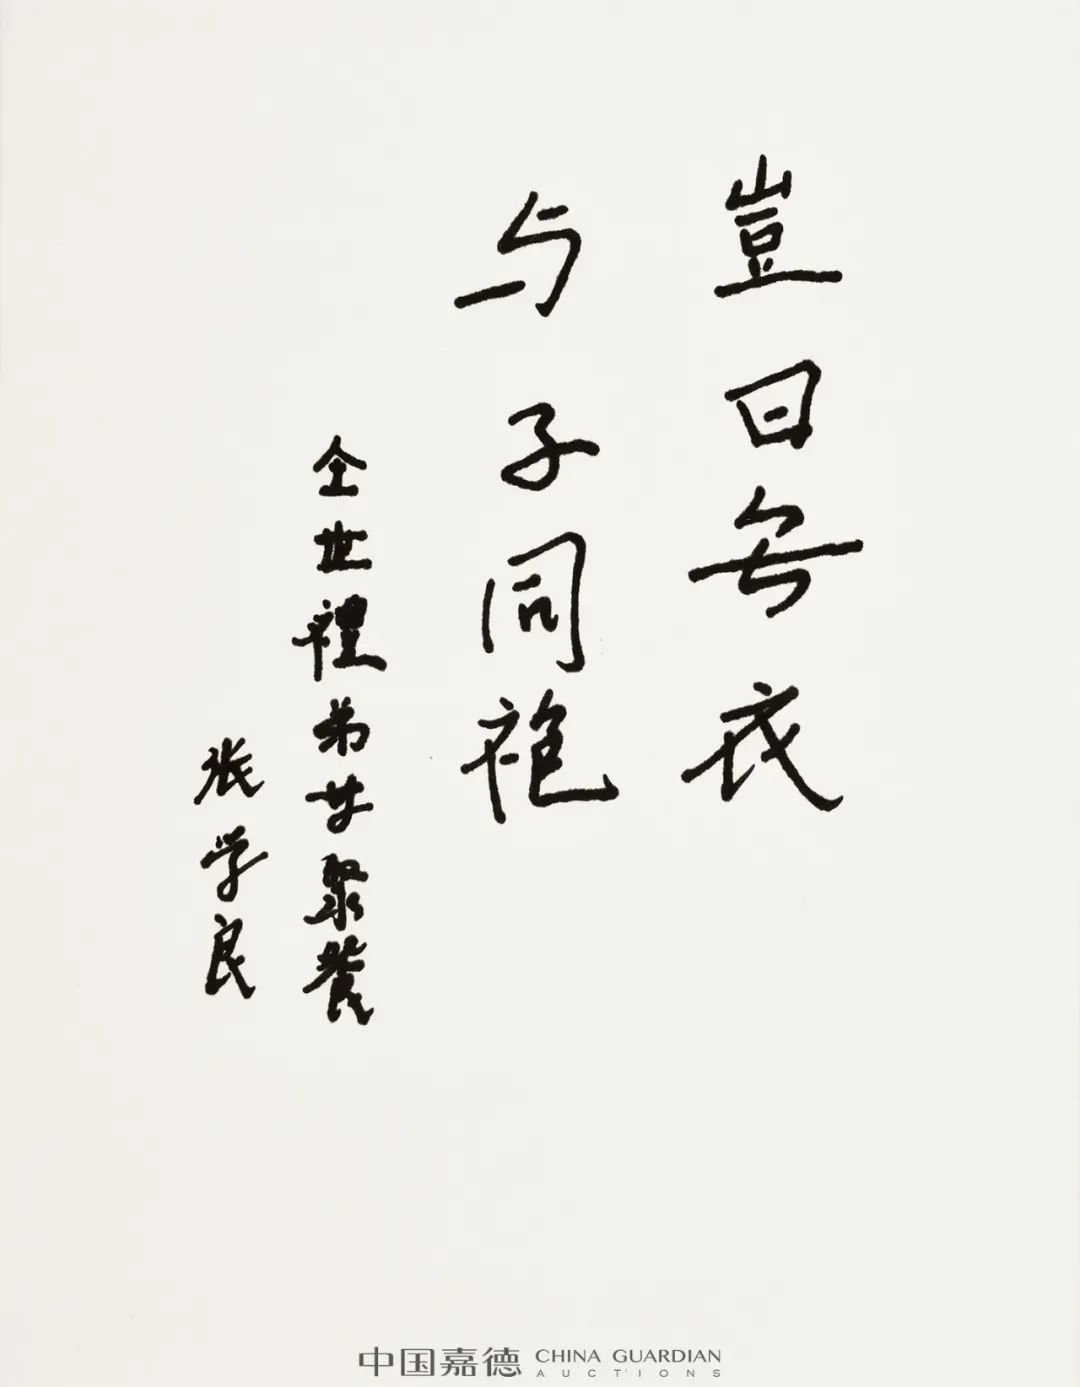 豈曰无衣
与子同袍
仝世禮弟廿聚餐
张学良
中国嘉德 CHINA GUARDIAN
AUCTIONS